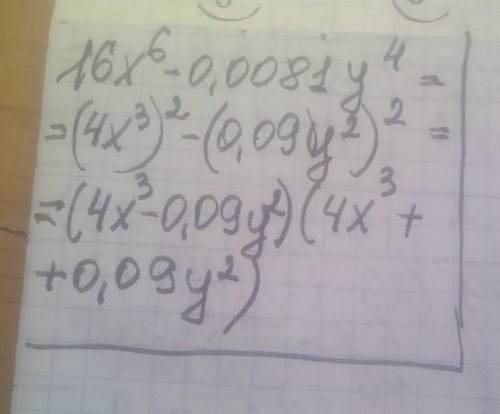 16x⁶-0,0081y⁴=
=(4x³)²-(0,09y²)²=
=(4x³-0,09y²)(4x³+
+0,09y²)